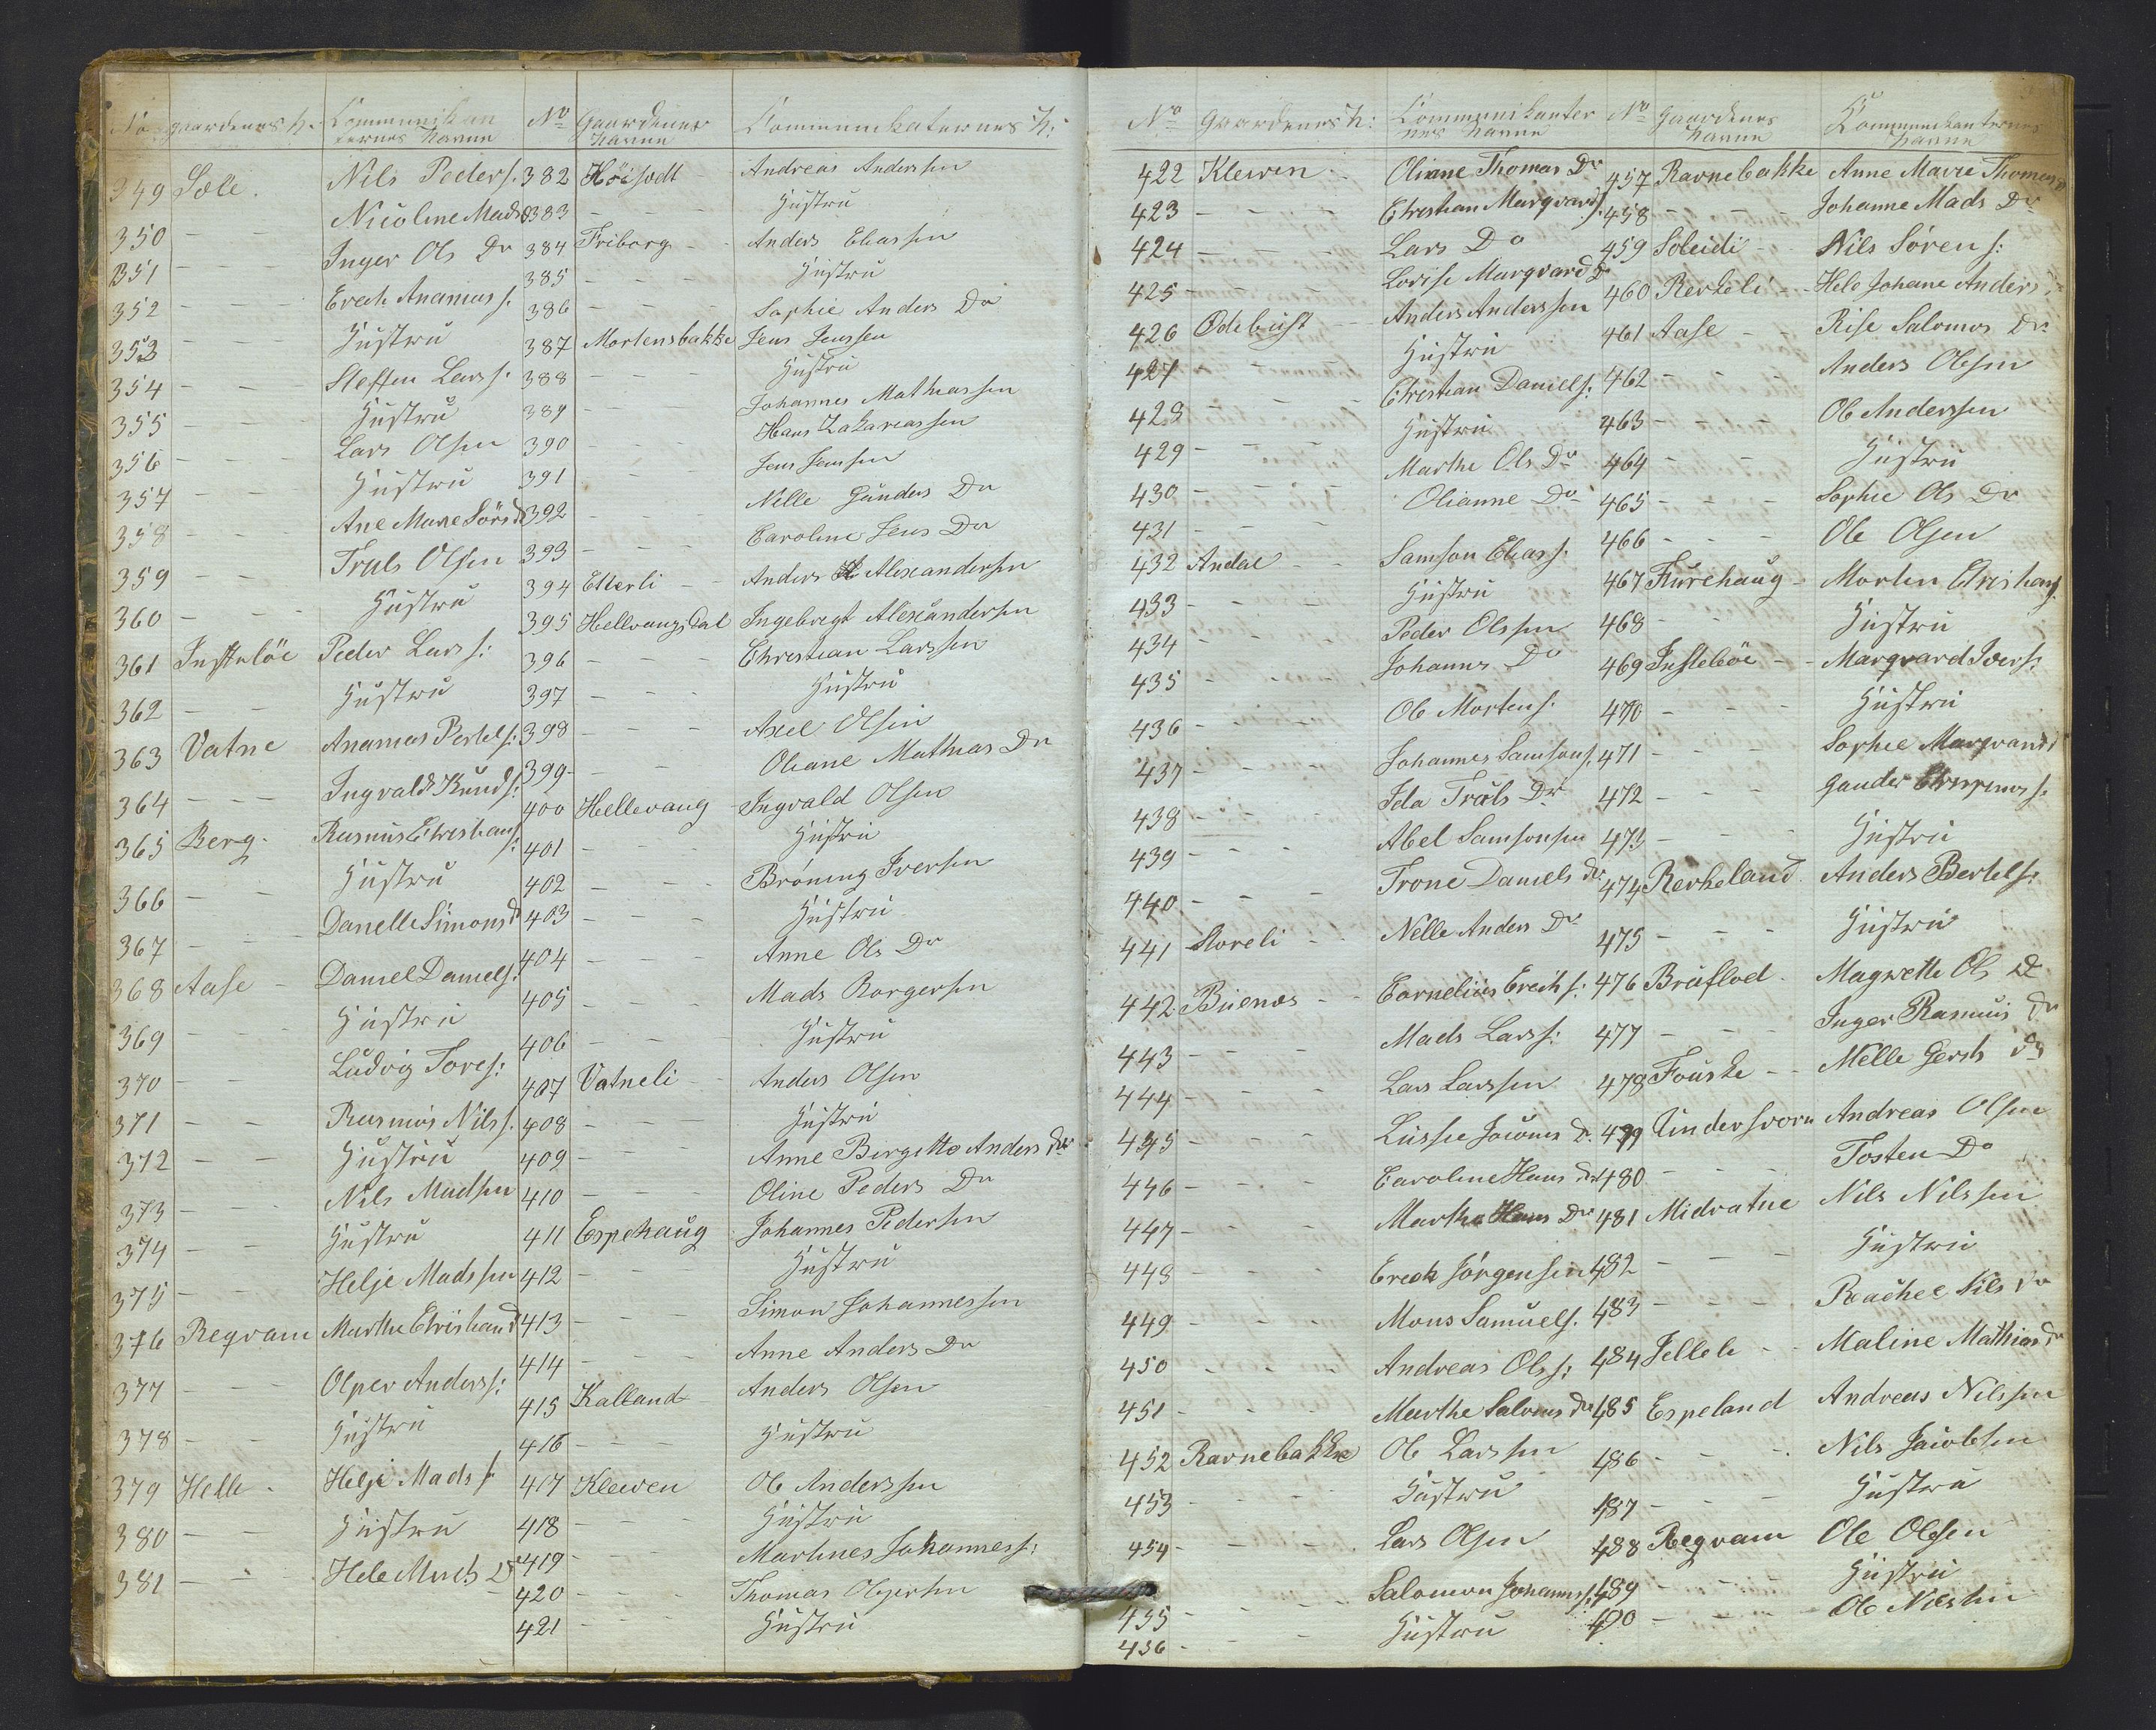 No gaardenes N. Kommunikan
ternes Navne
349 Sæle. Nils Peders.
350 - - Nicoline Mads D
351 - - - Inger Ols Dr
352 - - - Erech Ananias s.
353 - - - Hustru
354 - - Steffen Lars s.
355 - - - Hustru
356 - - - Lars Olsen
357 - - Hustru
358 - - Ane Marie Sörs D
359 - - Truls Olsen
360 - - - Hustru
361 Peder Lars s:
362 - - Hustru
363 Vatne Ananias Pertels:
364 - - - Ingvald Knuds:
365 Berg - Rasmus Christians:
366 - - Hustru
367 - - - Danelle Simons D
368 Aase - Daniel Daniels:
369 - - - Hustru
370 - - Ludvig Tores:
371 - - Rasmus Nils s.
372 - - Hustru
373 - - Nils Madsen
374 - - Hustru
375 - - Helje Madssen
376 Reqvam Marthe Christian D
377 - - - Olper Anders s:
378 - - Hustru
379 Helle - Helje Mads s.
380 - - Hustru
381 - - - Hele Mads D
No Gaardenes
Navne Kommunikaternes N:
382 Höisædt - Andreas Andersen
383 - - - Hustru
384 Friborg - - Anders Eliassen
385 - - - Hustru
386 - - - Sophie Anders Dr
387 Mortensbakke Jens Jenssen
388 - - - Hustru
389 - - Johannes Mathiassen
390 - - - Hans Zakariassen
391 - - Jens Jensen
392 - - - Nille Gunders Dr
393 - - - Caroline Jens Dr
394 Etterli - - Anders Alexandersen
395 Hellvangsdal Ingebregt Alexandersen
396 - - - Christian Larssen
397 - - - Hustru
398 - - - Axel Olsen
399 - - - Oliane Mathias Dr
400 Hellevang - Ingvald Olsen
401 - - - Hustru
402 - - - Bröning Iversen
403 - - - Hustru
404 - - - Anne Ols Dr
405 - - - Mads Borgersen
406 - - - Hustru
407 Vatneli - Anders Olsen
408 - - - Hustru
409 - - - Anne Birgitte Anders Dr
410 - - - Oline Peders Dr
411 Espehaug Johannes Pedersen
412 - - - Hustru
413 - - - Simon Johannessen
414 - - - Anne Anders Dr
415 Kalland - Anders Olsen
416 - - - Hustru
417 Kleiven Ole Anderssen
418 - - - Hustru
419 - - - Martines Johannes s:
420 - - - Thomas Olpersen
421 - - - Hustru
No Gaardenes N: Communikanter
nes Navne
422 Kleiven - Oliane Thomas Dr
423 - - - Christian Marqvards.
424 - - - Lars Do
425 - - - Lovise Marqvard D
426 Ödebust - - Anders Anderssen
427 - - - Hustru
428 - - - Christian Daniels:
429 - - - Hustru
430 - - - Marthe Ols Dr
431 - - - Olianne Dr
432 Andal - - Samson Elias s.
433 - - - Hustru
434 - - - Peder Olssen
435 - - - Johannes Do
436 - - - Ole Mortens:
437 - - - Johannes Samsons.
438 - - - Ida Truls Dr
439 - - - Abel Samsonsen
440 - - - Trone Daniels Dr
441 Storeli - - Nille Anders Dr
442 Buenæs - - Cornelius Erechs:
443 - - - Mads Lars s:
444 - - - Lars Larssen
445 - - - Lusse Jacobs D.
446 - - - Caroline Hans Dr
447 - - - Marthe Hans Dr
448 - - - Ereck Jörgensen
449 - - - Mons Samuels.
450 - - - Andreas Ols s:
451 - - - Marthe Saloms Dr
452 Ravnebakke Ole Larssen
453 - - - Hustru
454 - - - Lars Olsen
455 - - - Salomon Johanns s.
456 - - - Hustru
No Gaardenes
Navne Kommunikanternes
Navne
457 Ravnebakke Anne Marie Thomas D
458 - - - Johanne Mads Dr
459 Soleidi - Nils Sörens:
460 Rerkeli - - Hele Johane Anders
461 Aase - - Rise Salomos Dr
462 - - - Anders Olssen
463 - - - Ole Anderssen
464 - - Hustru
465 - - - Sophie Ols Dr
466 - - - Ole Olsen
467 Furehaug - Morten Christians.
468 - - - Hustru
469 Insteböe - - Marqvard Ivers:
470 - - - Hustru
471 - - - Sophie Marqvard
472 - - - Gunder
473 - - - Hustru
474 Rerkeland Anders Bertels:
475 - - - Hustru
476 Bruflod - Magrette Ols D
477 - - - Inger Rasmus Dr
478 Fouske - - Nille Gerts Dr
479 Undersvorn Andreas Olsen
480 - - - Tosten Do
481 Midvatne Nils Nilssen
482 - - - Hustru
483 - - - Rachel Nils Dr
484 Jellele - - Maline Mathias Dr
485 Espeland Andreas Nilssen
486 - - - Nils Jacobsen
487 - - - Hustru
488 Reqvam Ole Olsen
489 - - - Hustru
490 - - - Ole Nilssen